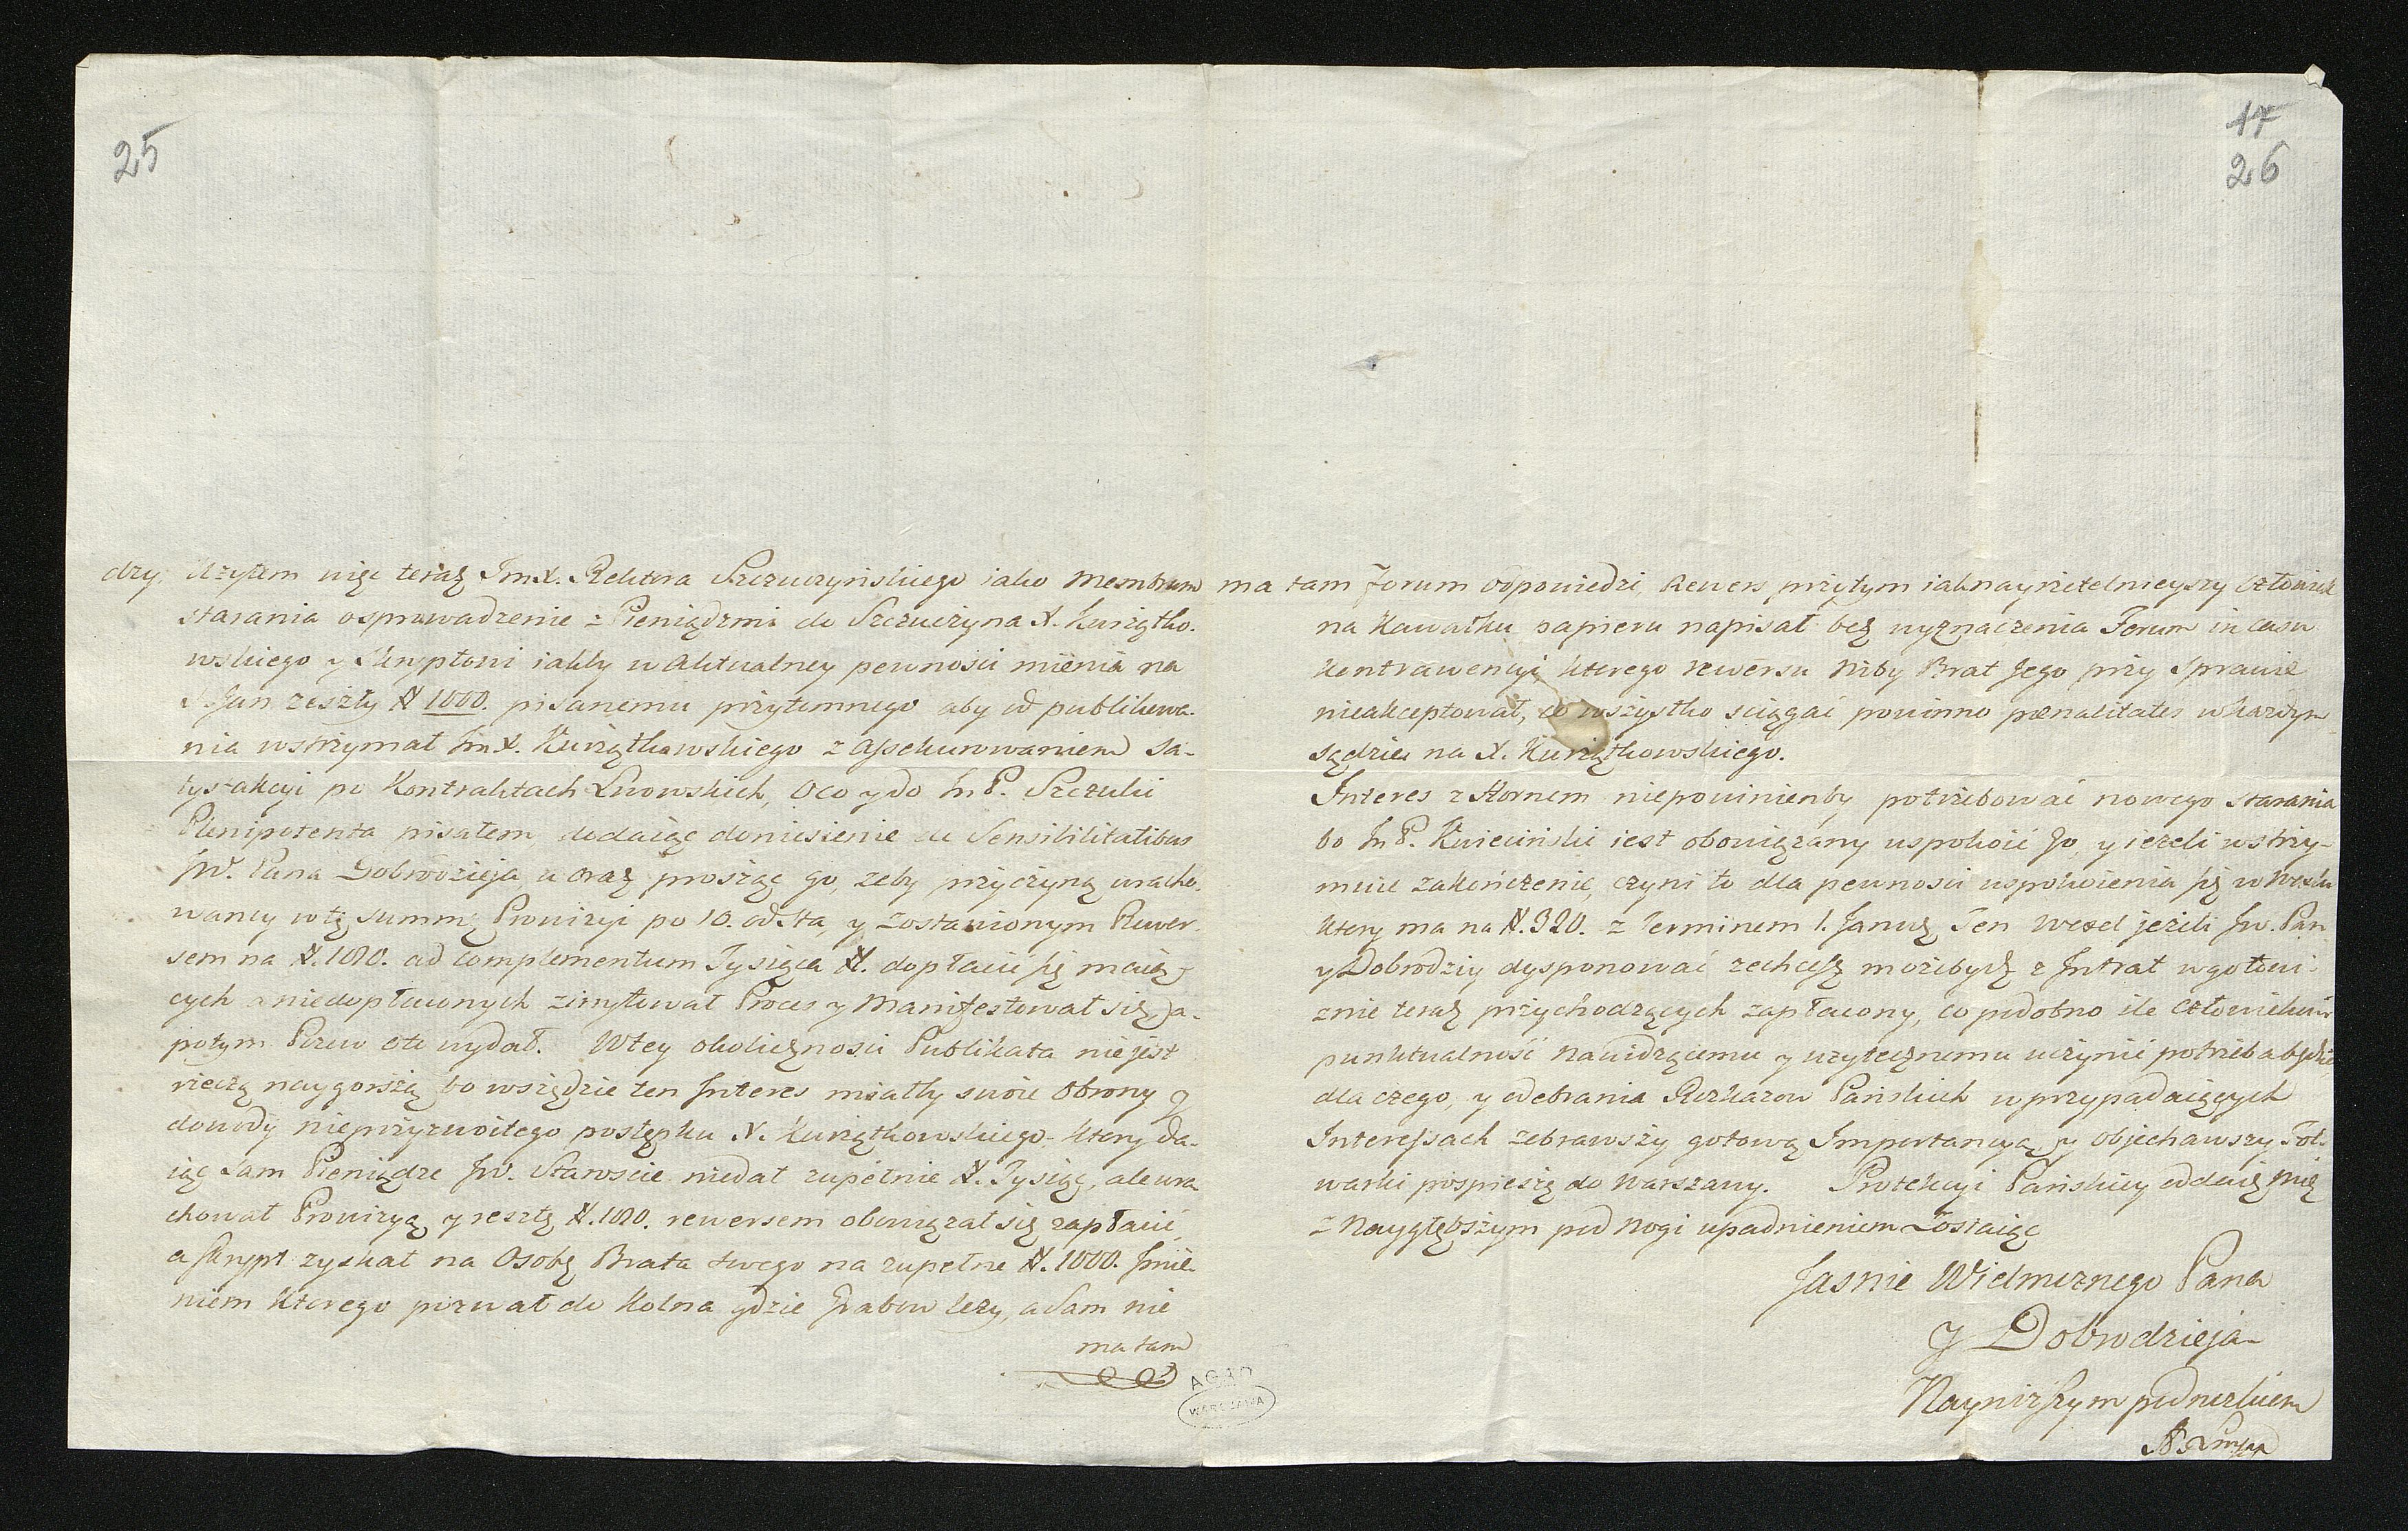 25
dzy. Użyłem więc teraz JmX. Rektora Szczuczyńskiego iako Membrum
starania o sprowadzenie z Pieniędzmi do Szczuczyna X. Kurządko-
wskiego y Skryptowi iakby w Aktualney pewności mienia na
S. Jan zeszły # 1000. pisanemu przytomnego aby od publikowa-
nia wstrzymał JmX. Kurządkowskiego z Assekurowaniem Sa-
tysfakcyi po Kontraktach Lwowskich, Oco y do Jm P. Szczuki
Plenipotenta pisałem, dodaiąc doniesienie de Sensibilitatibus
JW. Pana Dobrodzieja u oraz prosząc go, zeby przyczyną wracho-
waney w tę summę Prowizyi po 10. od sta, y zostawionym Rewer-
sem na #. 1010. ad complementum Tysiąca #. dopłacić się maią-
cych a niedopłaconych zimytował Proces y Manifestował się, a
potym Pozew oto wydał. W tey okoliczności Publikata nie jest
rzeczą naygorszą bo wszędzie ten Interes miałby swoie Obrony y
dowody nieprzyzwoitego postępku X. Kurządkowskiego, ktory da-
iąc Sam Pieniądze JW. Staroscie niedał zupełnie #. Tysiąc, ale wra
chował Prowizyą, y resztę #. 1010. rewersem obowiązał się zapłacić,
a Skrypt zyskał na Osobę Brata swego na zupełne #. 1000. Jmie-
niem ktorego pozwał do Kolna gdzie Grabow lezy, a Sam nie
ma tam
AGAD
WARSZAWA
17
26
ma tam Forum odpowiedzi, Rewers przytym iak nayrzetelnieyszy Człowiek
na Kawałku papieru napisał bez wyznaczenia Forum in casu
Kontrawencyi, ktorego rewersu niby Brat Jego przy Sprawie
nieakceptował, co wszystko sciągać powinno pœnalitates w kazdym
sądzie na X. Kurządkowskiego.
Interes z Hornem niepowinienby potrzebować nowego starania
bo Jm P. Kwieciński iest obowiązany uspokoić Go, y iezeli wstrzy-
muie zakończenie, czyni to dla pewności uspokoienia się w Wexlu
ktory ma na #. 320. z Terminem 1. Januar. Ten Wexel jeżeli JW. Pan
y Dobrodziy dysponować zechcesz możebydź z Intrat w gotowi-
znie teraz przychodzących zapłacony, co podobno ile Człowiekowi
punktualność nawidzącemu y uzytecznemu uczynić potrzeba będzie,
dla czego, y odebrania Rozkazow Pańskich w przypadaiących
Interessach zebrawszy gotową Importancyą y objechawszy Fol-
warki pospieszę do Warszawy. Protekcyi Pańskiey oddaię się
z Naygłębszym pod Nogi upadnieniem Zostaiąc
Jasnie Wielmoznego Pana
y Dobrodzieja
Nayniższym podnożkiem